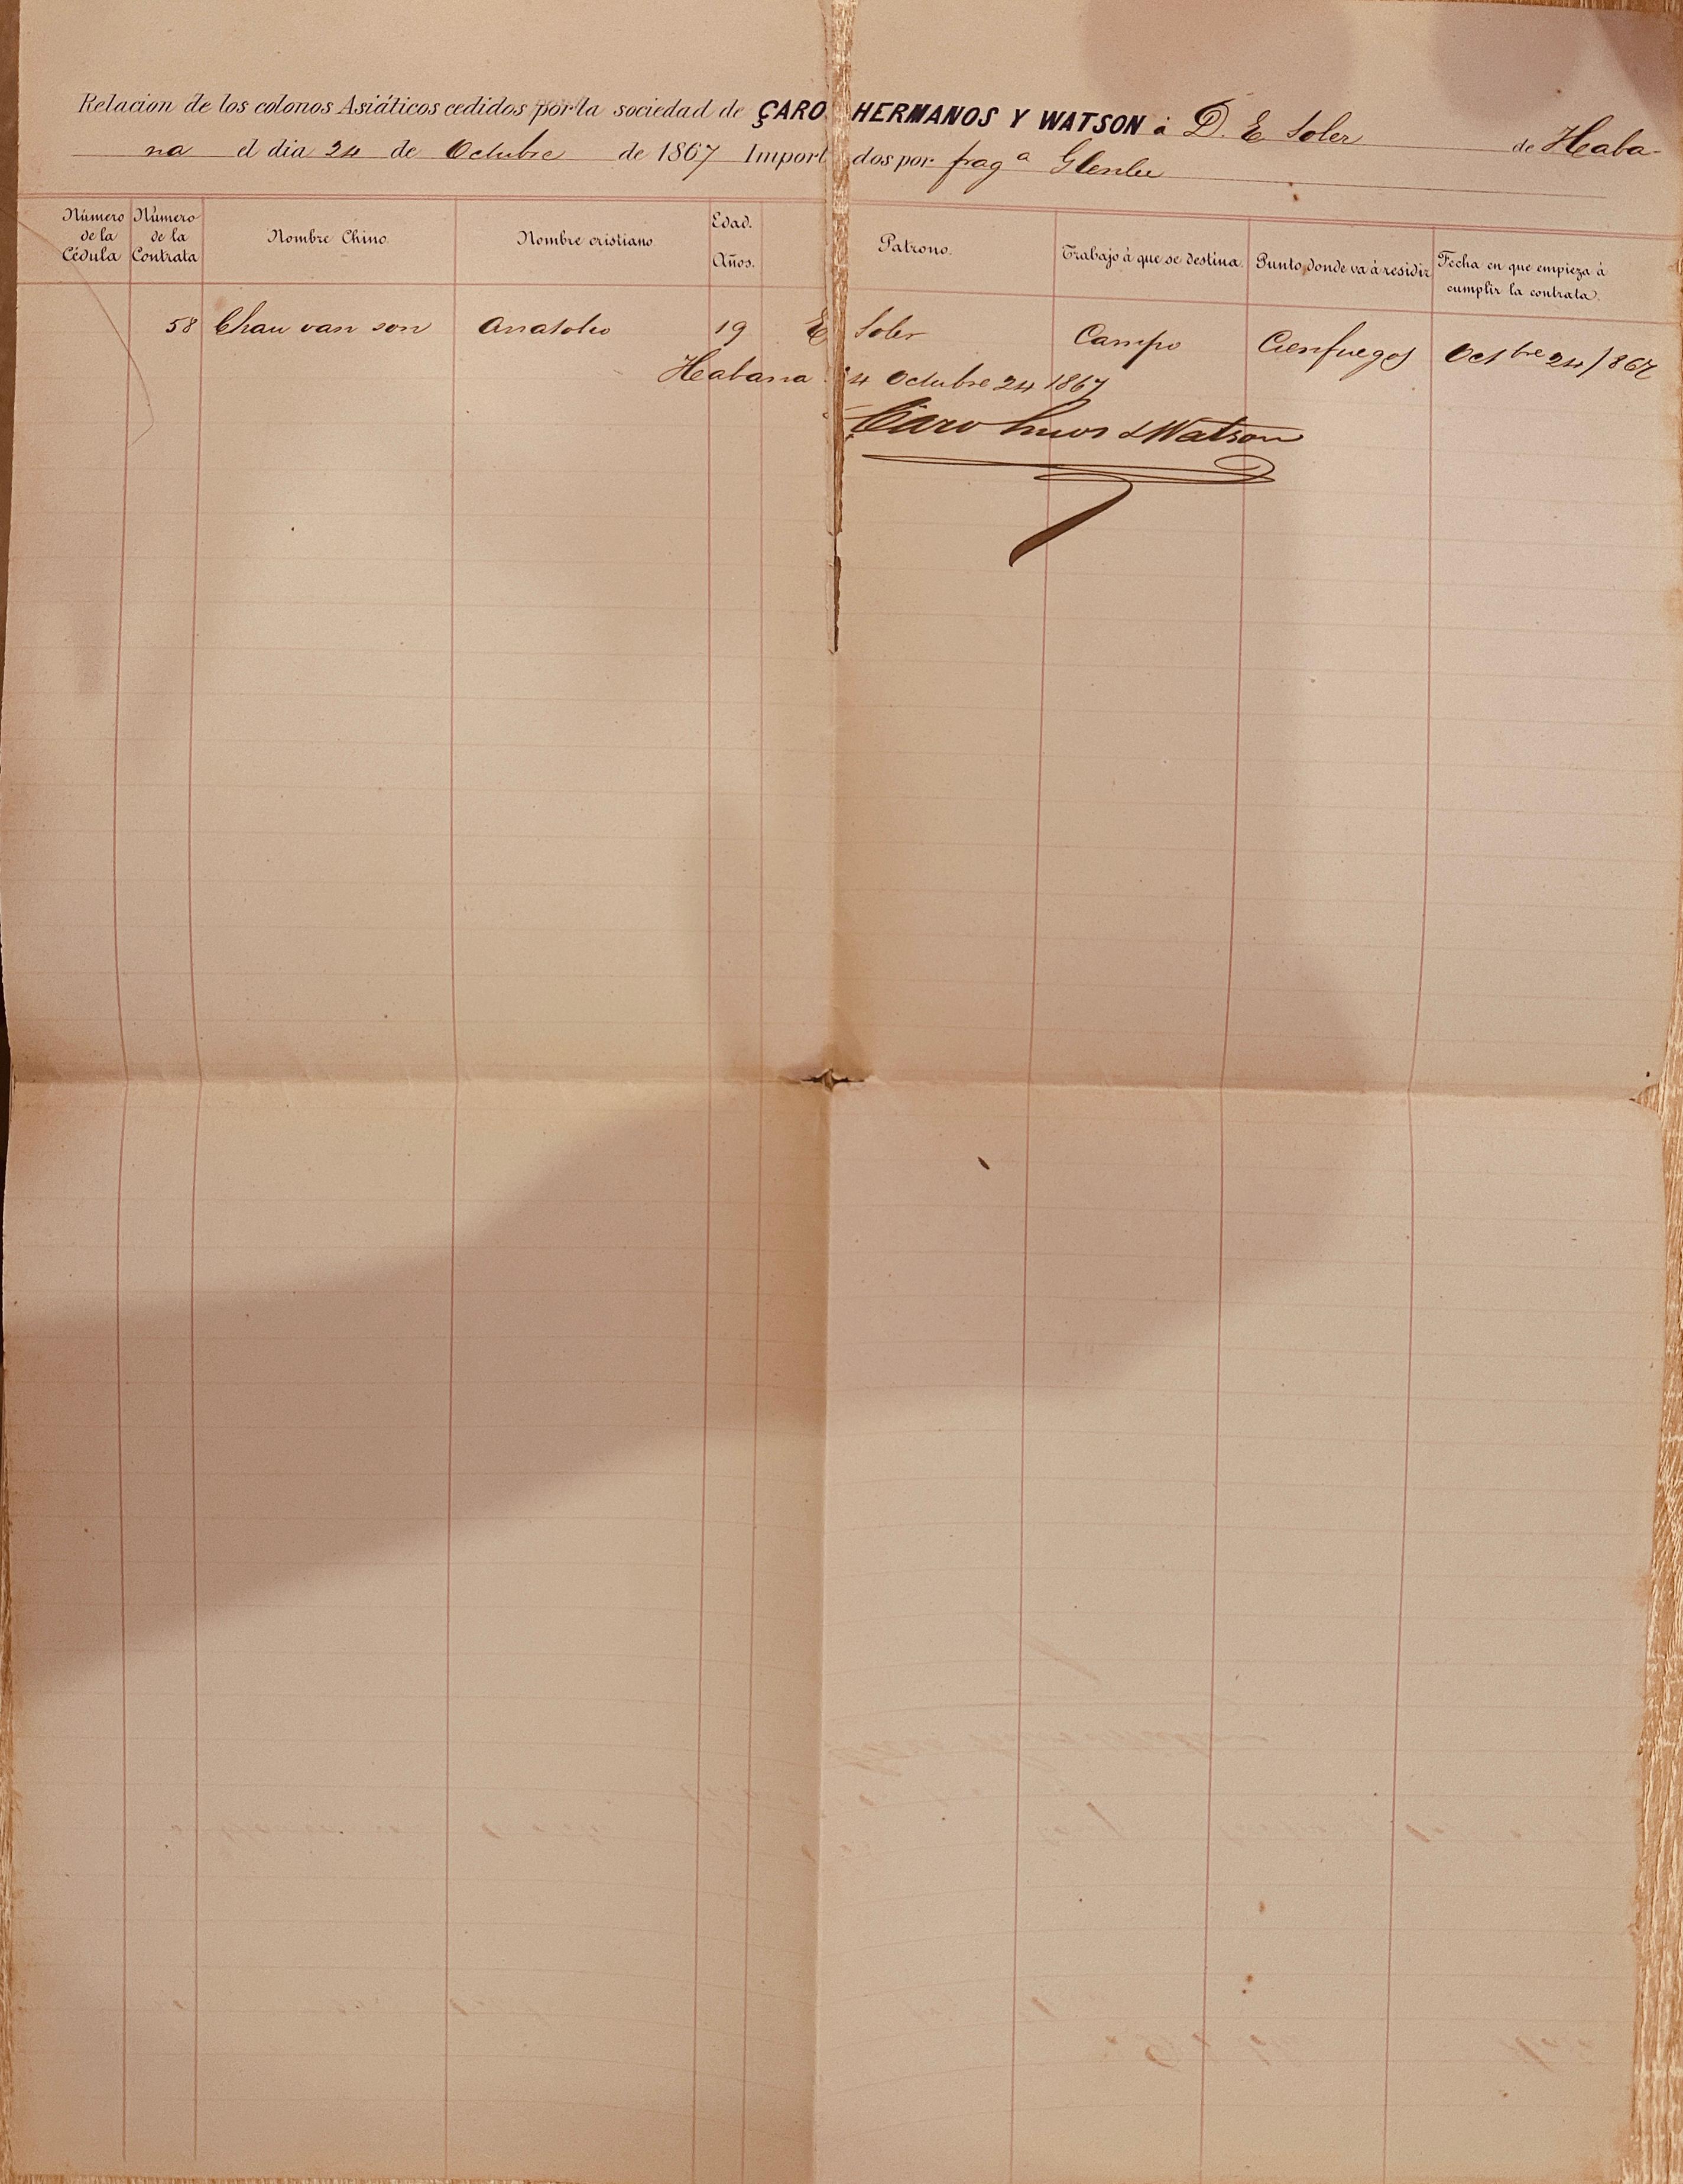 Relacion de los colonos Asiáticos cedidos por la sociedad de ÇARO HERMANOS Y WATSON á D. E Soler de Haba-
na el dia 24 de Octubre de 1867 Import dos por frag.ª Glenlee
Número de la Cédula Número de la Contrata Nombre Chino. Nombre cristiano Edad. Años. Patrono. Trabajo á que se destina. Punto donde va á residir Fecha en que empieza á cumplir la contrata.
58 Chau van son Anatolio 19 E Soler Campo Cienfuegos Octbre 24/867
Habana 4 Octubre 24 1867
Çaro hnos & Watson